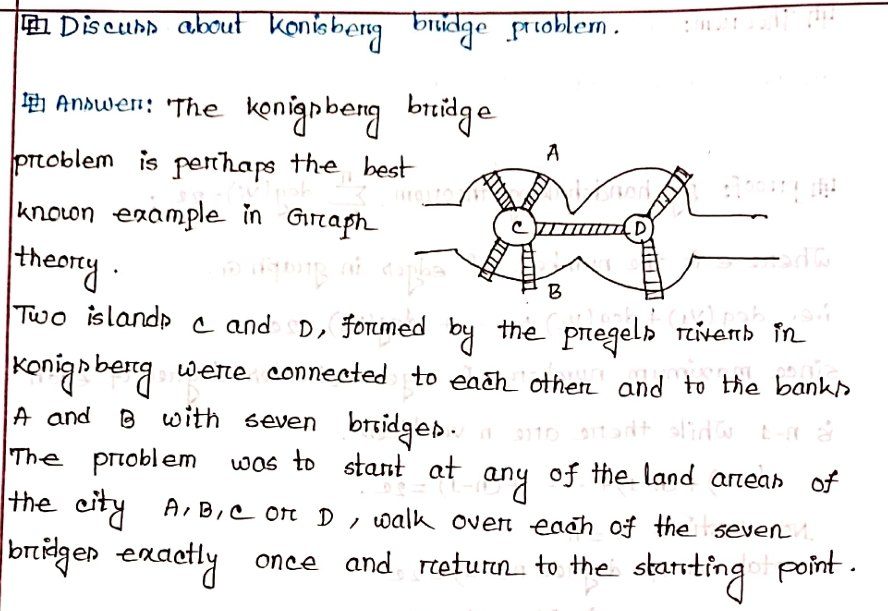 Discuss about Konisberg bridge problem.
Answer: The konigsberg bridge
problem is perhaps the best
known example in Graph
theory.
A
C
D
B
Two islands C and D, formed by the pregels rivers in
konigsberg were connected to each other and to the banks
A and B with seven bridges.
The problem was to start at any of the land areas of
the city A, B, C or D, walk over each of the seven
bridges exactly once and return to the starting point.